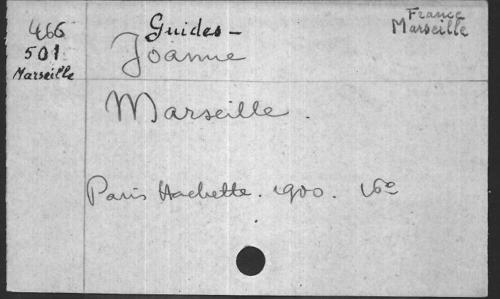 466
501
Marseille
Guides-
Joanne
France
Marseille
Marseille.
Paris Hachette. 1900. 16º